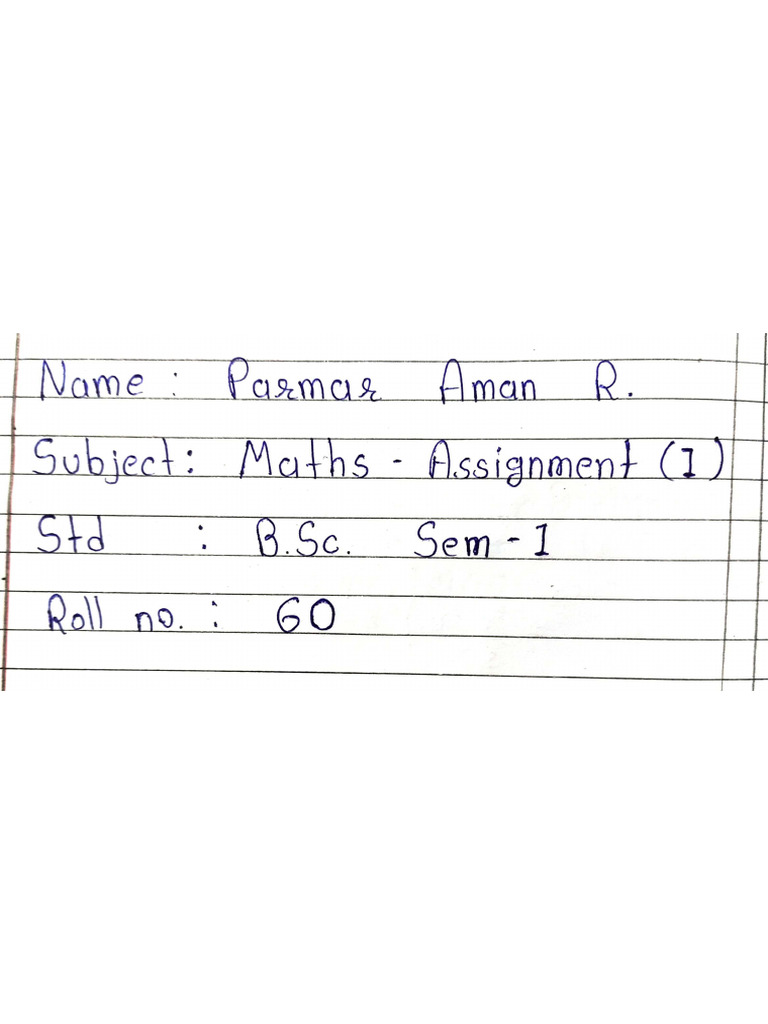 Name : Parmar Aman R.
Subject: Maths - Assignment (1)
Std : B.Sc. Sem - 1
Roll no. : 60